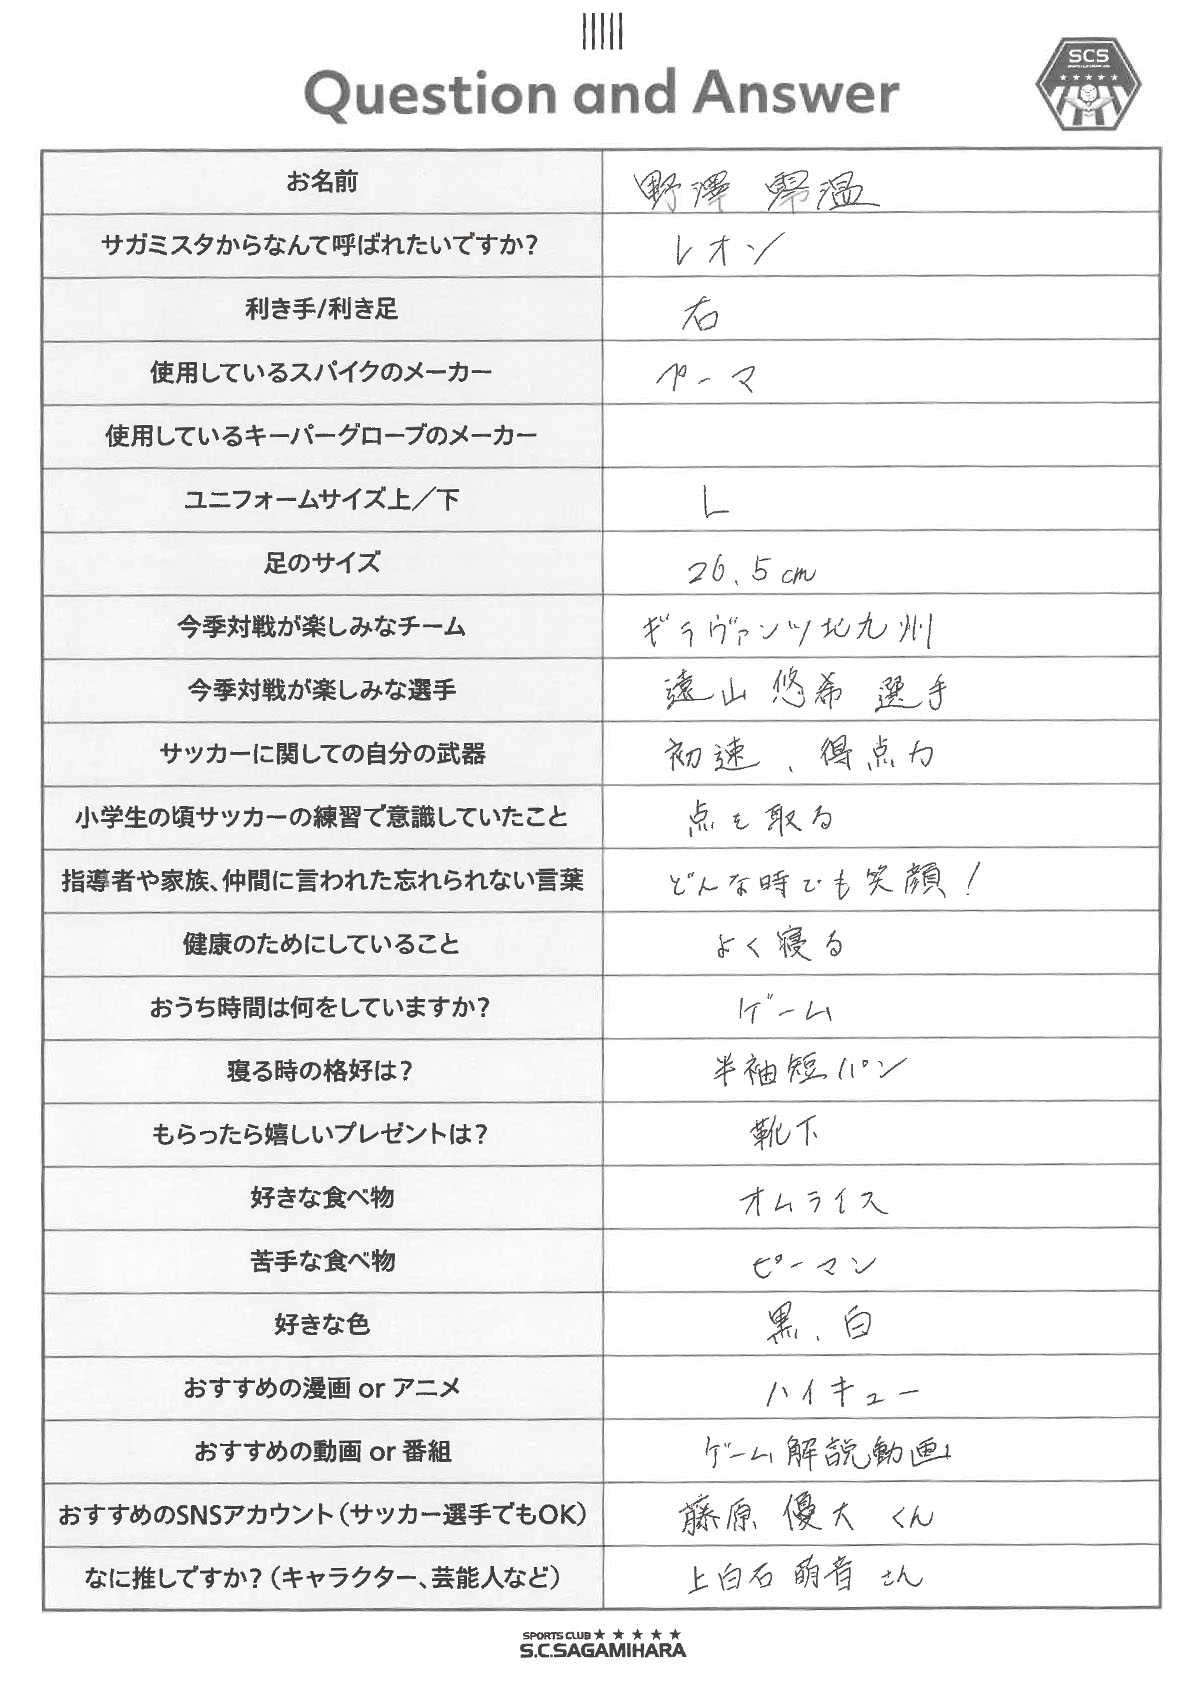 Question and Answer
SCS
お名前 野澤 零温
サガミスタからなんて呼ばれたいですか? レオン
利き手/利き足 右
使用しているスパイクのメーカー プーマ
使用しているキーパーグローブのメーカー
ユニフォームサイズ上／下 L
足のサイズ 26.5cm
今季対戦が楽しみなチーム ギラヴァンツ北九州
今季対戦が楽しみな選手 遠山 悠希 選手
サッカーに関しての自分の武器 初速、得点力
小学生の頃サッカーの練習で意識していたこと 点を取る
指導者や家族、仲間に言われた忘れられない言葉 どんな時でも笑顔！
健康のためにしていること よく寝る
おうち時間は何をしていますか? ゲーム
寝る時の格好は? 半袖短パン
もらったら嬉しいプレゼントは? 靴下
好きな食べ物 オムライス
苦手な食べ物 ピーマン
好きな色 黒、白
おすすめの漫画 or アニメ ハイキュー
おすすめの動画 or 番組 ゲーム解説動画
おすすめのSNSアカウント（サッカー選手でもOK） 藤原 優大 くん
なに推しですか?（キャラクター、芸能人など） 上白石 萌音 さん
SPORTS CLUB ★ ★ ★ ★ ★
S.C.SAGAMIHARA